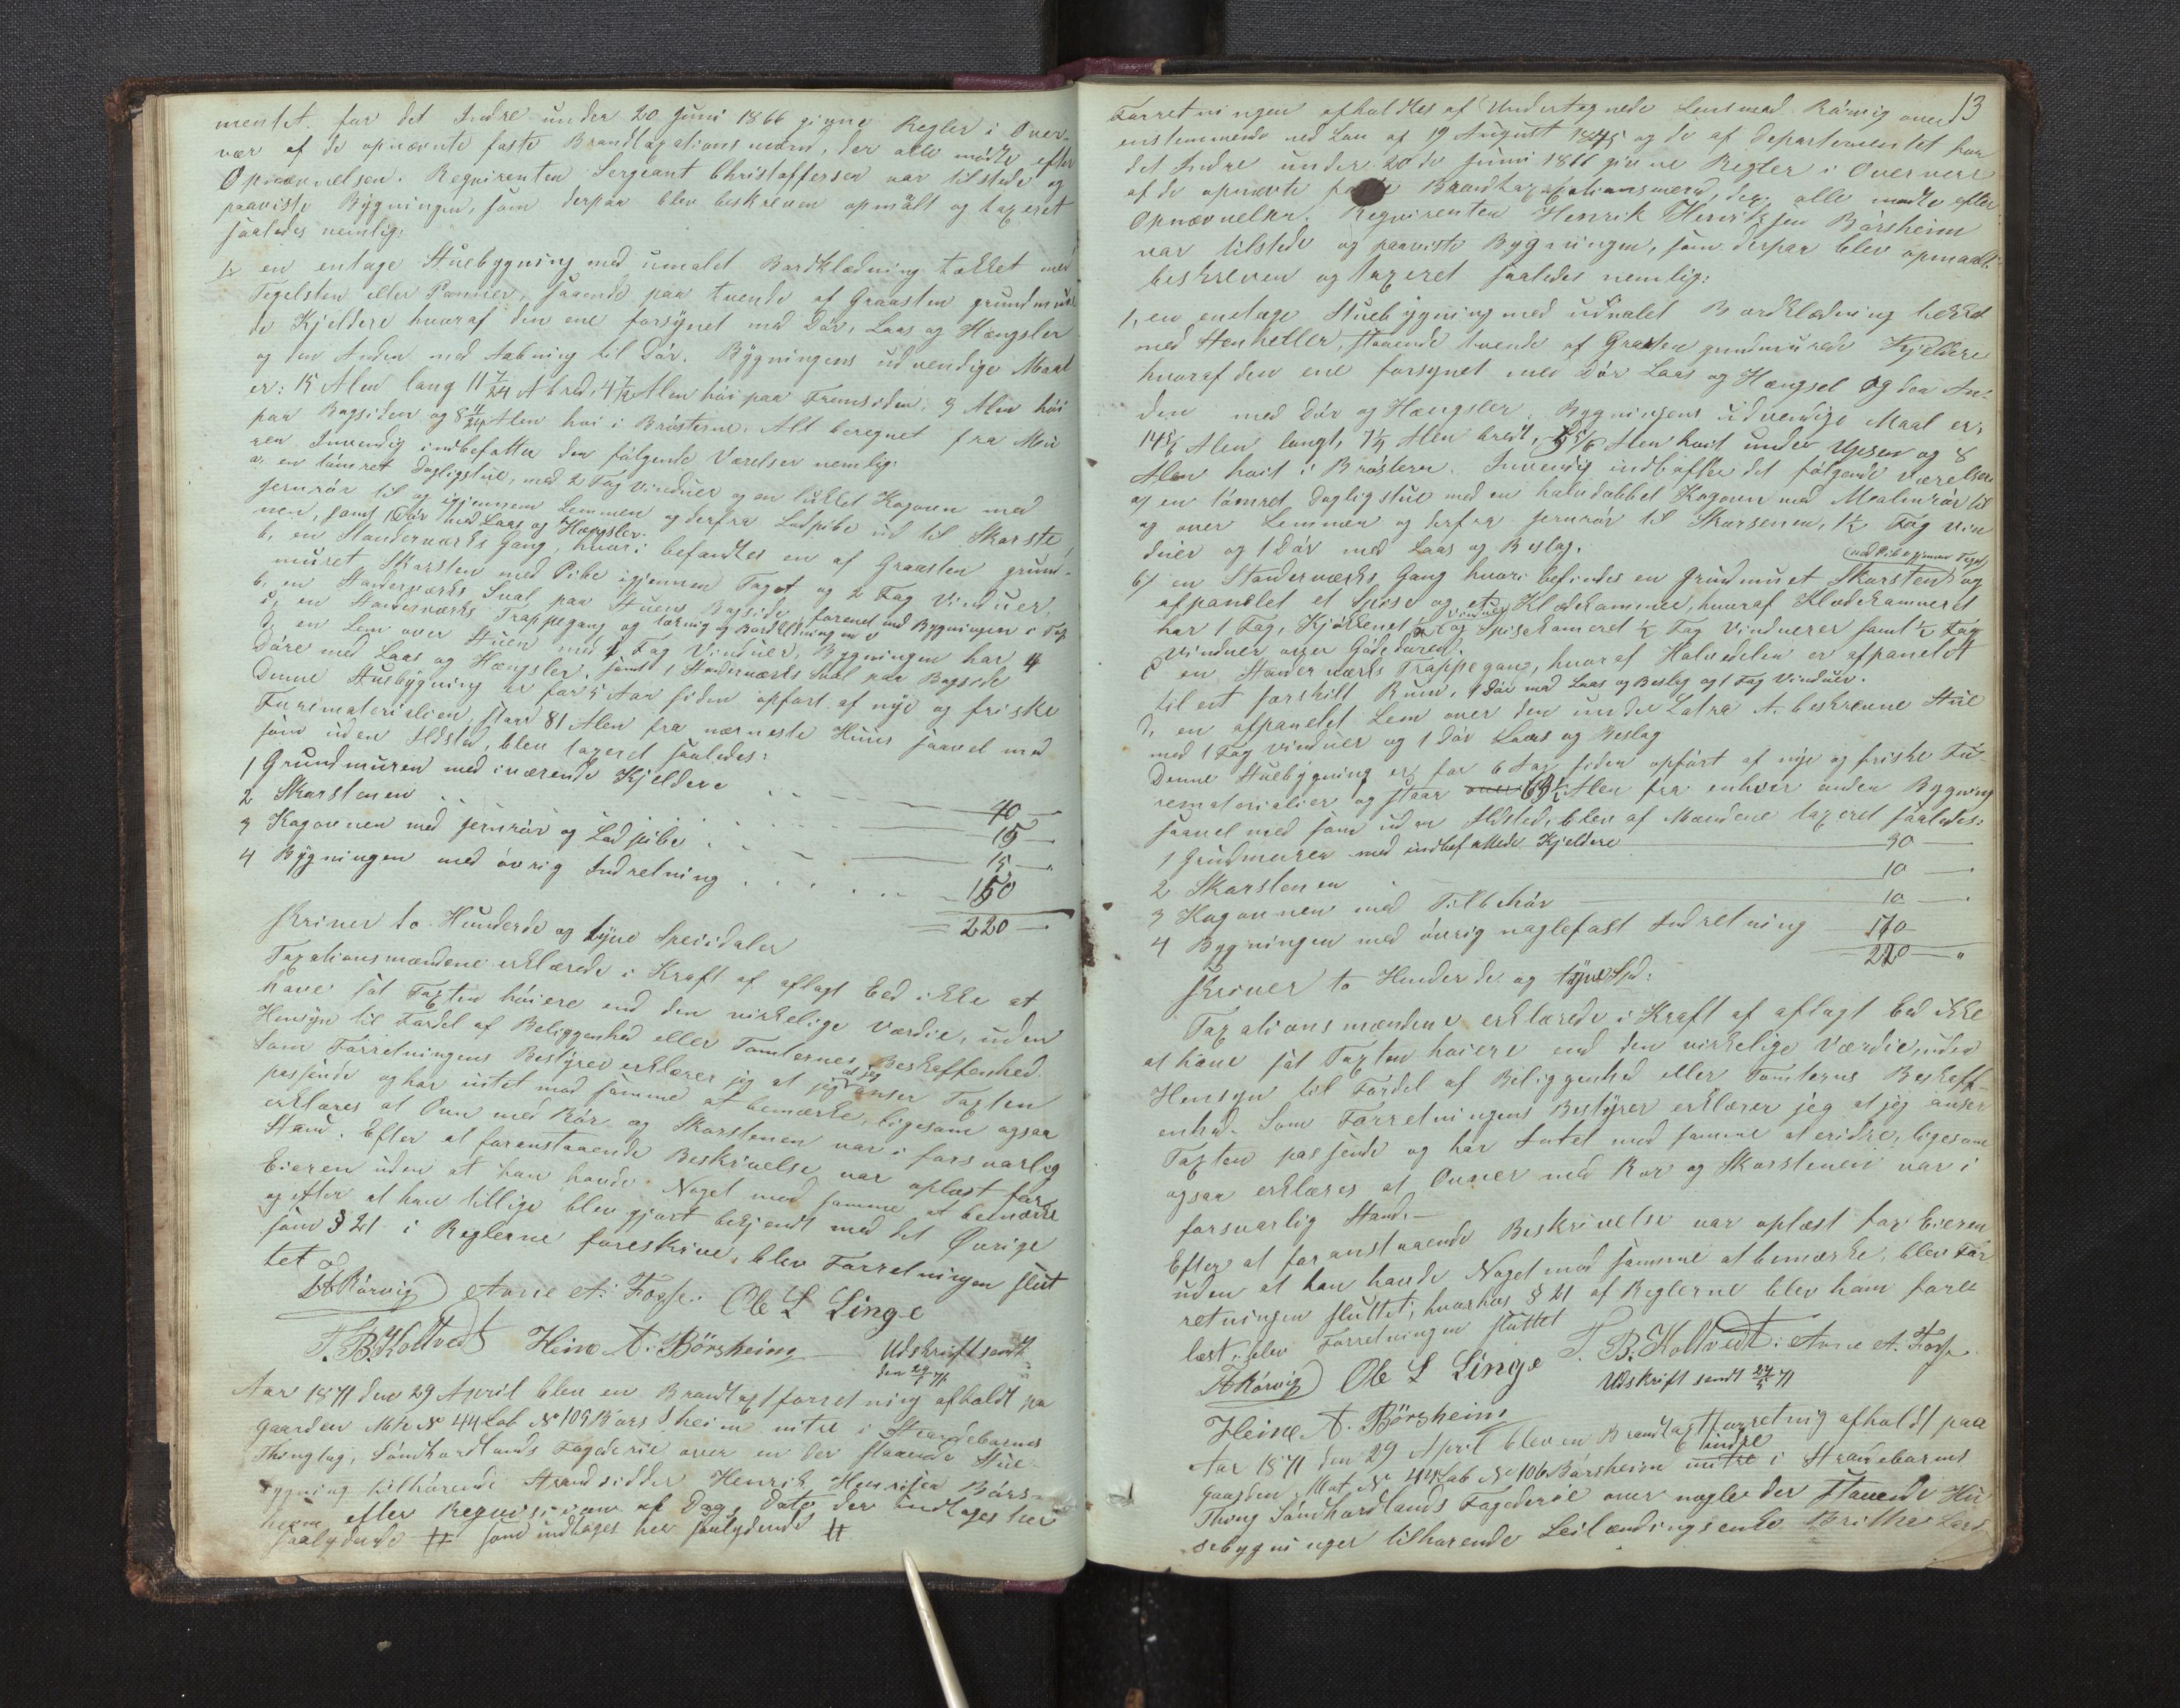 mentet for det Indre under 20 Juni 1866 givne Regler i Over-
vær af de opnævnte faste Brandtaxationsmænd, der alle mødte efter
Opnævnelsen. Requirenten Sergeant Christoffersen var tilstede og
paaviste Bygningen, som derpaa blev beskreven opmålt og taxeret
saaledes nemlig:
1, en entage Stuebygning med umalet Bordklædning tækket med
Tegelsten eller Panner, staaende paa tvende af Graasten grundmure-
de Kjeldere hvoraf den ene forsynet med Dør, Laas og Hængsler
og den Anden med Aabning til Dør. Bygningens udvendige Maal
er: 15 Alen lang 11 7/24 A bred, 4 7/12 Alen høi paa Fremsiden, 3 Alen høi
paa Bagsiden og 8 11/24 Alen høi i Brøsterne. Alt beregnet fra Mu
ren Invendig indbefatter den følgende Værelser nemlig:
a, en tømret Dagligstue, med 2 Fag Vinduer og en lukket Kagovn med
Jernrør til og igjennem Lemmen og derfra Ladpibe ud til Skorste
nen, samt 1 Dør med Laas og Hængsler.
b, en Standerværks Gang, hvori befandtes en af Graasten grund-
muret Skorsten med Pibe igjennem Taget og 2 Fag Vinduer.
b, en Standerværks Sval paa Stuens Bagside forenet med Bygningen i Tag
c, en Standerværks Trappegang og tækning og Bordklædningen
d, en Lem over Stuen med 1 Fag Vinduer, Bygningen har 4
Døre med Laas og Hængsler, samt 1 Standerværks Sval paa Bagside
Denne Stuebygning er for 5 Aar siden opført af nye og friske
Furematerialier, staar 81 Alen fra nærmeste Huus saavel med
som uden Ildsted, blev taxeret saaledes:
1 Grundmuren med iværende Kjeldere 40 —
2 Skorstenen 15 —
3 Kagovnen med Jernrør og Ladpibe 15 —
4 Bygningen med øvrig Indretning 150
= 220 —
skriver to Hunderde og tyve Speisidaler
Taxationsmændene erklærede i Kraft af aflagt Eed ikke at
have sat Taxten høiere end den virkelige Værdie, uden
Hensyn til Fordel af Beliggenhed eller Tomternes Beskaffenhed.
Som Forretningens Bestyrer erklærer jeg at jeg anser Taxten
passende og har intet mod samme at bemærke, ligesom ogsaa
erklæres at Ovn med Rør og Skorstenen var i forsvarlig
Stand. Efter at foranstaaende Beskrivelse var oplæst for
Eieren uden at han havde Noget mod samme at bemærke
og efter at han tillige blev gjort bekjendt med det Øvrige
som § 21 i Reglerne foreskrive, blev Forretningen slut
tet
Rørvig Arne A. Fosse. Ole L Linge
T. B. Koltvedt Heine A. Börsheim
Udskrift sendt
den 24/5 71
Aar 1871 den 29 April blev en Brandtaxtforretning afholdt paa
Gaarden Matr No 44 Lob No 109 Børsheim nitre i Strandebarms
Thinglag, Søndhordlands Fogderie over en der staaende Stue-
bygning tilhørende Strandsidder Henrik Henriksen Børs-
heim efter Reqvisision af Dags Dato der indtages her
saalydende # som indtages her saalydende #
13
Forretningen afholdtes af Undertegnede Lensmand Rørvig over-
enstemmende med Lov af 19 August 1845 og de af Departementet for
det Indre under 20de Juni 1866 givne Regler i Overvære
af de opnævnte faste Brandtaxationsmænd, der alle mødte efter
Opnævnelser. Requirenten Henrik Henriksen Børsheim
var tilstede og paaviste Bygningen, som derpaa blev opmaalt
beskreven og taxeret saaledes nemlig:
1, en enetage Stuebygning med udmalet Bordklædning tækket
med Stenheller, staaende tvende af Graasten grundmurede Kjeldere
hvoraf den ene forsynet med Dør Laas og Hængsel og den An-
den med Dør og Hængsler. Bygningens udvendige Maal er,
14 5/6 Alen langt, 7 1/4 Alen bredt, 5 5/6 Alen høit under Upsen og 8
Alen høit i Brøstene. Invendig indbefatter det følgende Værelser
a) en tømret Dagligstue med en halvdobbel Kagovn med Malmrør til
og over Lemmen og derfra Jernrør til Skorstenen, 1 1/2 Fag Vin
duer og 1 Dør med Laas og Beslag.
b) en Standerværks Gang hvori befindes en Grundmuret Skorsten (med Pibe gjennem Taget) og
afpanelet et Spise og et Klædekammer, hvoraf Klædekammeret
har 1 Fag, Kjøkkenet 1/2 Vindue og Spisekameret 1/2 Fag Vinduer samt 1/2 Fag
Vinduer over Gadedøren.
c en Standerværks Trappegang, hvoraf Halvedelen er afpanelet
til et forskilt Rum, 1 Dør med Laas og Beslag og 1 Fag Vinduer.
d, en afpanelet Lem over den under Litra A. beskrevne Stue
med 1 Fag Vinduer og 1 Dør Laas og Beslag
Denne Stuebygning er for 6 Aar siden opført af nye og friske Fu-
rematerialier og staar 69 1/2 Alen fra enhver anden Bygning
saavel med som uden Ildsted, blev af Mændene taxeret saaledes:
1 Grundmuren med indbefattede Kjeldere 30 —
2 Skorstenen 10 —
3 Kagovnen med Tilbehør 10 —
4 Bygningen med øvrig naglefast Indretning 170
220 —
skriver to Hunderde og tyve Spd:
Taxationsmændene erklærede i Kraft af aflagt Eed ikke
at have sat Taxten høiere end den virkelige Værdie, uden
Hensyn til Fordel af Beliggenhed eller Tomternes Beskaff-
enhed. Som Forretningens Bestyrer erklærer jeg at jeg anser
Taxten passende og har Intet mod samme at erindre, ligesom
ogsaa erklæres at Ovner med Rør og Skorstenen var i
forsvarlig Stand.—
Efter at foranstaaende Beskrivelse var oplæst for Eieren
uden at han havde Noget mod samme at bemærke, blev For
retningen sluttet, hvorhos § 21 af Reglerne blev ham fore
læst, blev Forretningen sluttet
Rørvig Ole L Linge T. B. Koltvedt. Arne A. Fosse.
Heine A. Börsheim
Udskrift sendt 24/5 71
Aar 1871 den 29 April blev en Brandtaxtforretnig afholdt paa
Gaarden Mat. No 44 Lob No 106 Børsheim nitre indre i Strandebarms
Thing Søndhordlands Fogderie over nogle der staaende Hu
sebygninger tilhørende Leilændingsenke Brithe Lars